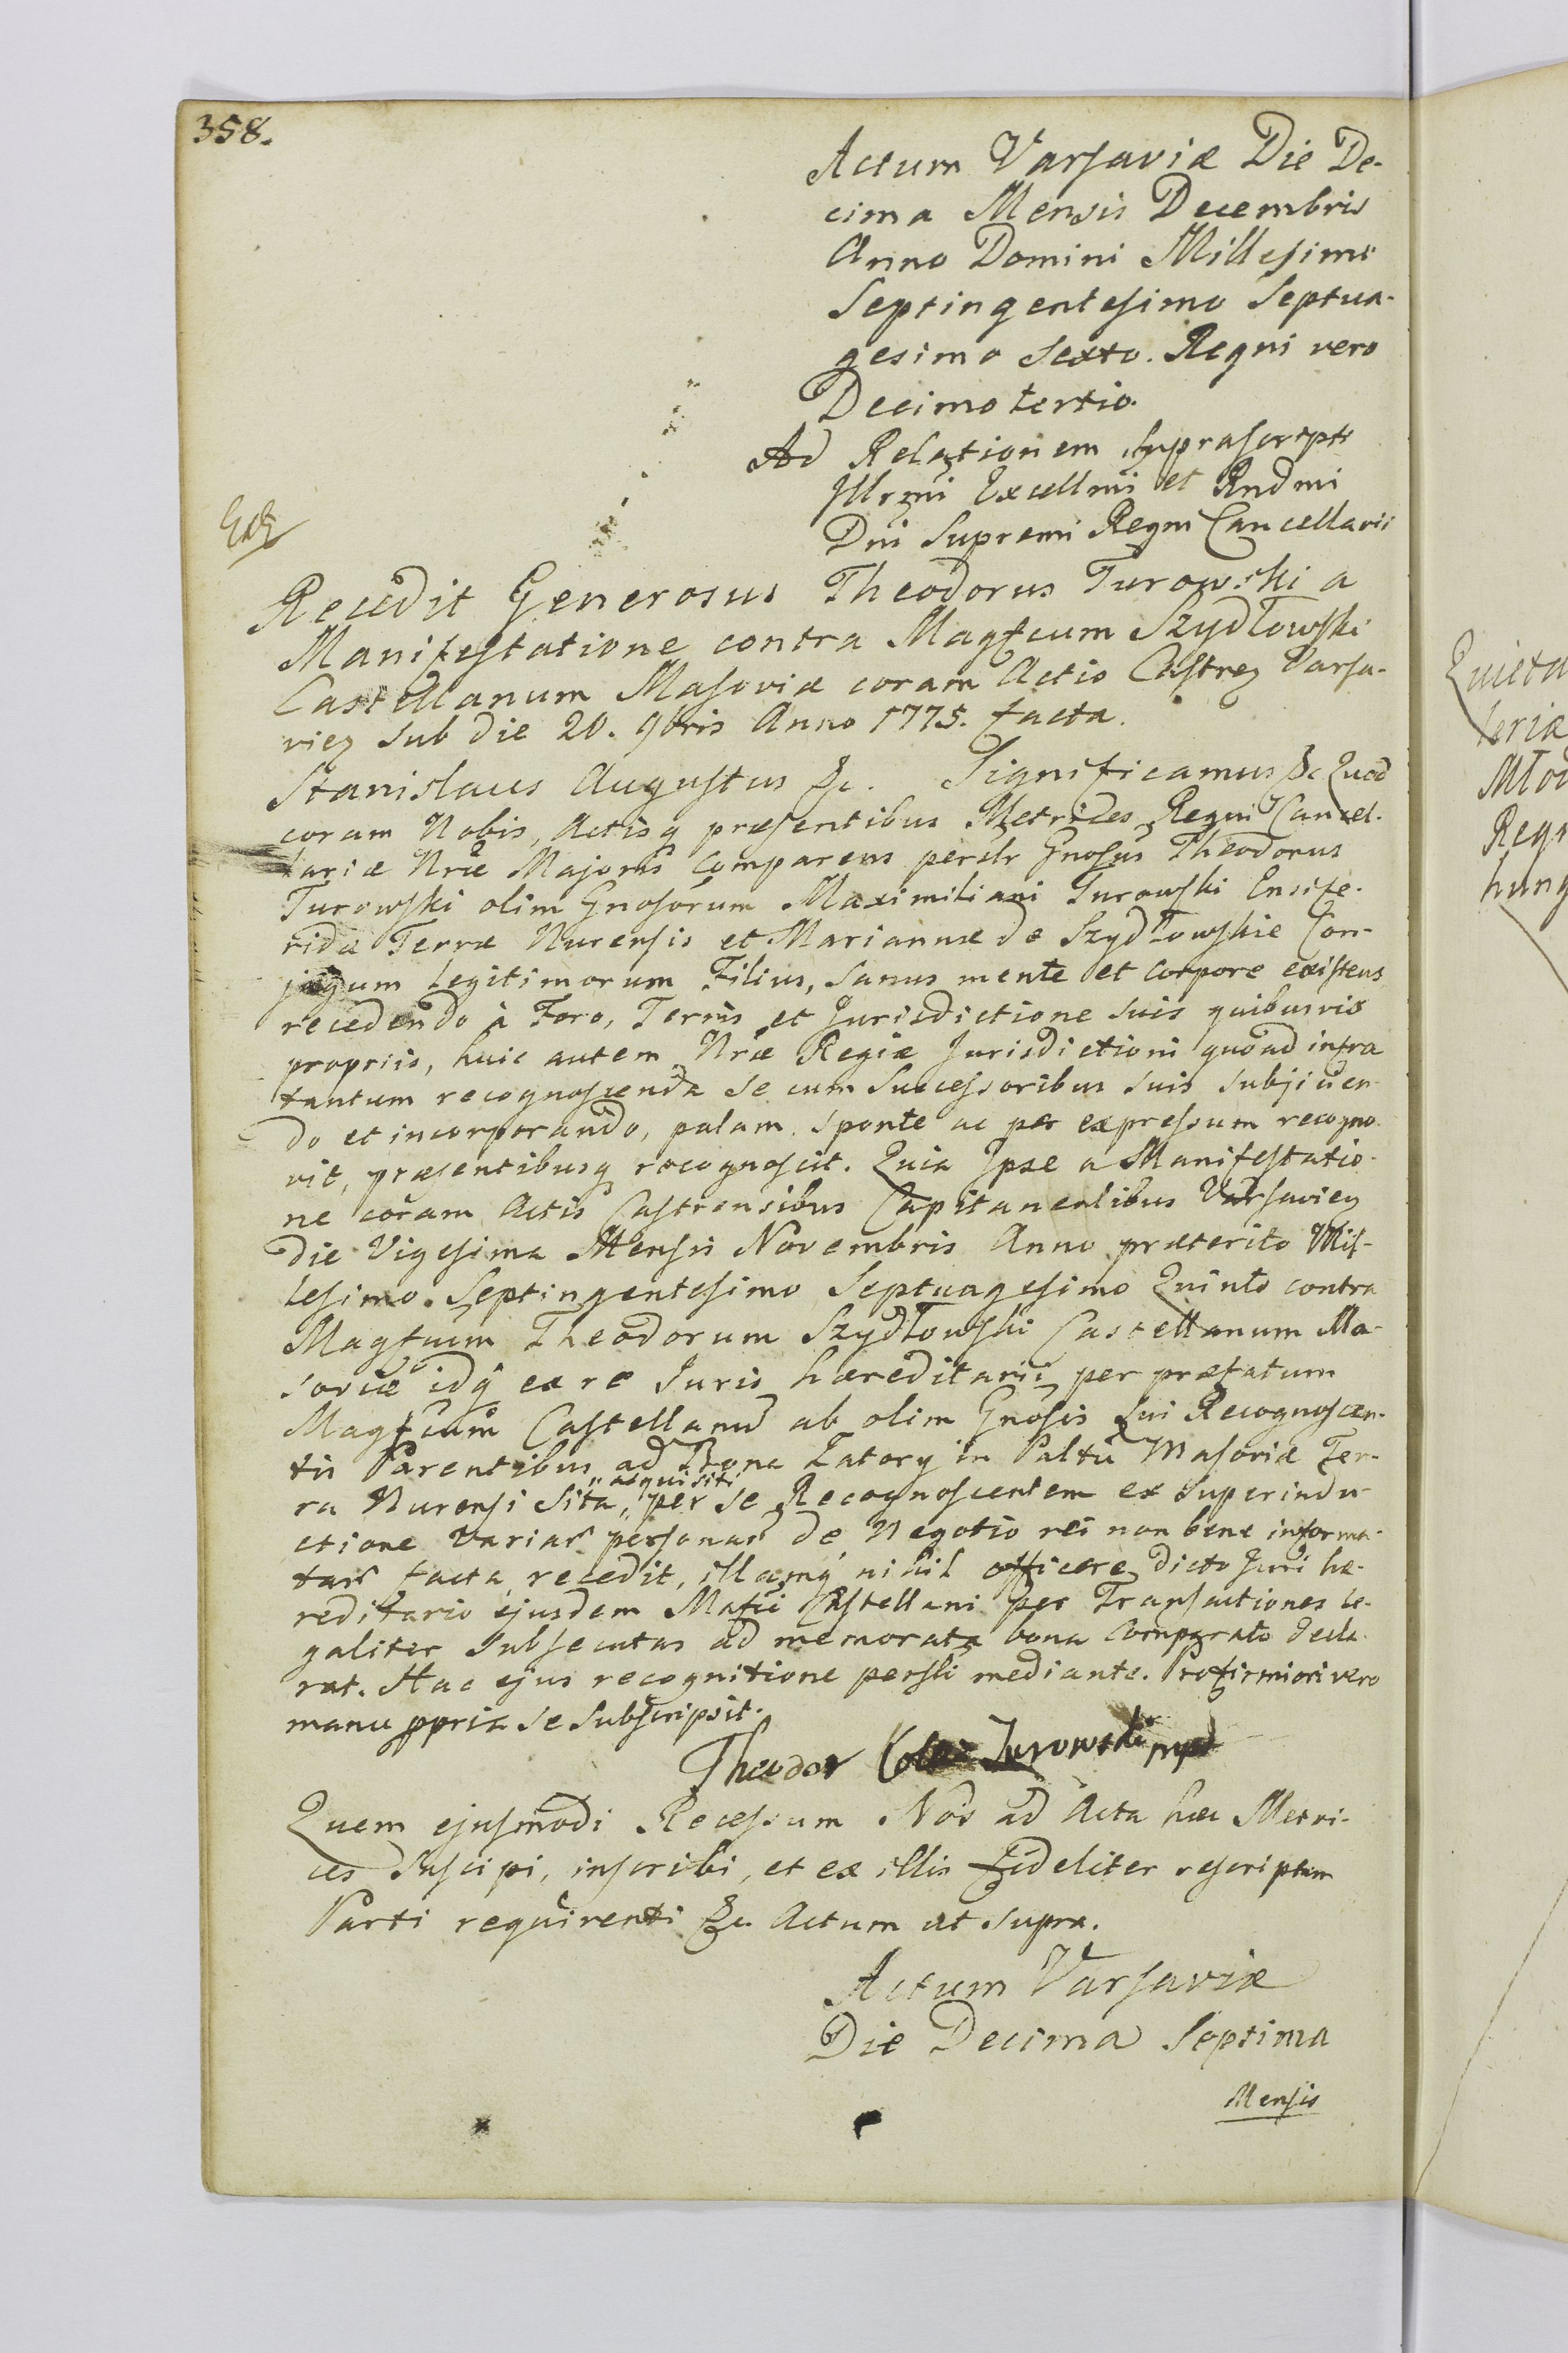 358.
Actum Varsaviæ Die De-
cima Mensis Decembris
Anno Domini Millesimo
Septingentesimo Septua-
gesimo Sexto. Regni vero
Decimo tertio.
Ad Relationem suprascripti
Illrmi Excellmi et Rndmi
Dni Supremi Regni Cancellarii
Recedit Generosus Theodorus Turowski a
Manifestatione contra Magfcum Szydłowski
Castellanum Masoviæ coram Actis Castren Varsa-
vien sub die 20. 9bris Anno 1775. facta.
Stanislaus Augustus &c. Significamus &c Quod
coram Nobis, Actisq præsentibus Metrices Regni Cancel-
lariæ Nræ Majoris Comparens personlr Gnosus Theodorus
Turowski olim Gnosorum Maximiliani Turowski Ensife-
ridæ Terræ Nurensis et Mariannæ de Szydłowskie Con-
jugum legitimorum Filius, sanus mente et corpore existens
recedendo à Foro, Terris et Jurisdictione suis quibusvis
propriis, huic autem Nræ Regiæ Jurisdictioni quoad infra
tantum recognoscenda se cum Successoribus suis subjicien-
do et incorporando, palam sponte ac per expressum recogno-
vit, præsentibusq recognoscit. Quia Ipse a Manifestatio-
ne coram Actis Castrensibus Capitanealibus Varsavien
die Vigesima Mensis Novembris Anno præterito Mil-
lesimo Septingentesimo Septuagesimo Quinto contra
Magfcum Theodorum Szydłowski Castellanum Ma-
soviæ idq ex re Juris hæreditarii per præfatum
Magfcum Castellanū ab olim Gnosis sui Recognoscen-
tis Parentibus ad Bona Zatory in Paltū Masoviæ Ter-
ra Nurensi Sita "acquisiti" per se Recognoscentem ex superindu-
ctione variar personar de Negotio rei non bene informa-
tar facta, recedit, illamq nihil officere dicto Juri hæ-
reditario ejusdem Mafci Castellani per Transactiones le-
galiter subsecutas ad memorata bona comparato decla-
rat. Hac ejus recognitione personli mediante. Pro firmiori vero
manu ppria se subscripsit.
Theodor Turowski mpp
Quem ejusmodi Recessum Nos ad Acta hæc Metri-
ces suscipi, inscribi, et ex illis fideliter rescriptum
Parti requirenti &c. Actum ut supra.
Actum Varsaviæ
Die Decima Septima
Mensis
Quieta
teriæ
Młod
Regn
hung